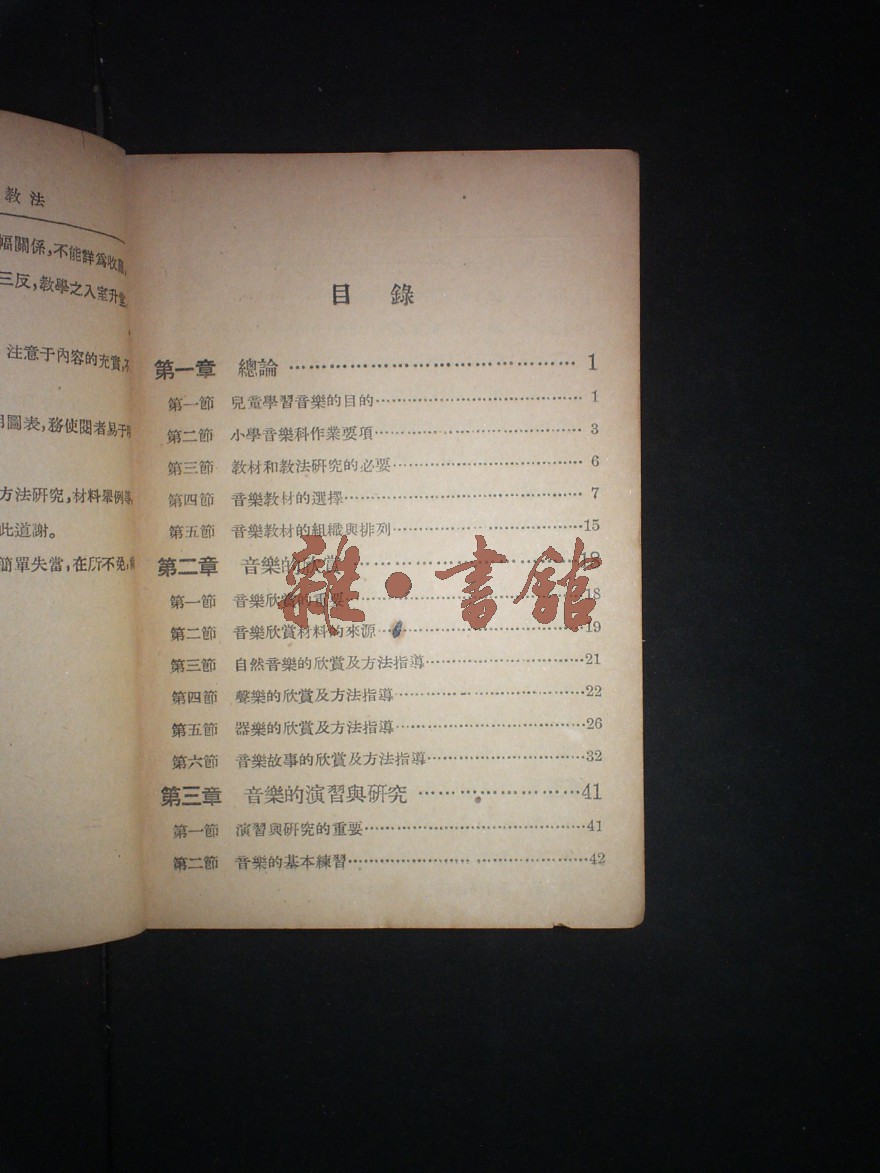 教法
幅關係,不能詳爲收
三反,教學之入室升堂
注意于內容的充實,不
用圖表,務使閱者易于
方法研究,材料舉例等,
此道謝。
簡單失當,在所不免,
目錄
第一章 總論 ………… 1
第一節 兒童學習音樂的目的 ………… 1
第二節 小學音樂科作業要項 ………… 3
第三節 教材和教法研究的必要 ………… 6
第四節 音樂教材的選擇 ………… 7
第五節 音樂教材的組織與排列 ………… 15
第二章 音樂的欣賞 ………… 18
第一節 音樂欣賞的重要 ………… 18
第二節 音樂欣賞材料的來源 ………… 19
第三節 自然音樂的欣賞及方法指導 ………… 21
第四節 聲樂的欣賞及方法指導 ………… 22
第五節 器樂的欣賞及方法指導 ………… 26
第六節 音樂故事的欣賞及方法指導 ………… 32
第三章 音樂的演習與研究 ………… 41
第一節 演習與研究的重要 ………… 41
第二節 音樂的基本練習 ………… 42
雜·書館